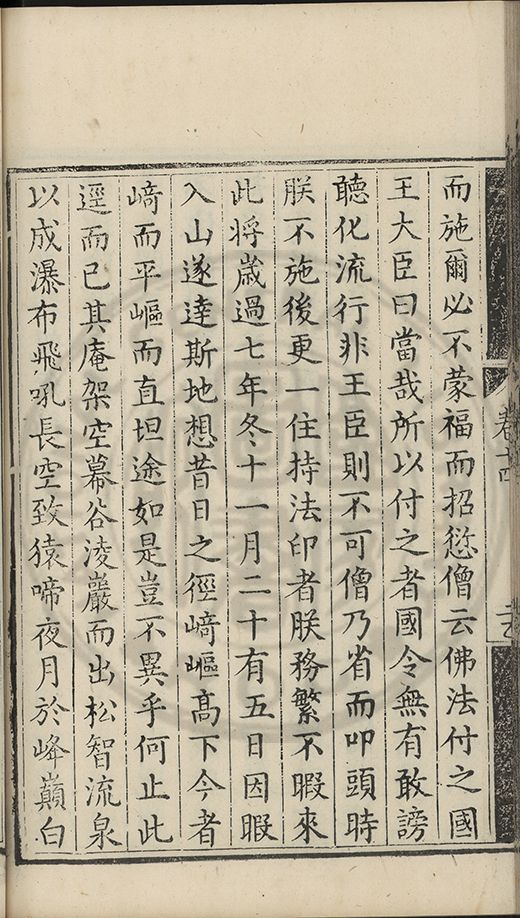 而施爾必不蒙福而招愆僧云佛法付之國
王大臣曰當哉所以付之者國令無有敢謗
聽化流行非王臣則不可僧乃省而叩頭時
朕不施後更一住持法印者朕務繁不暇來
此將歲過七年冬十一月二十有五日因暇
入山遂達斯地想昔日之徑﨑嶇高下今者
﨑而平嶇而直坦途如是豈不異乎何止此
逕而已其庵架空幕谷淩巖而出松智流泉
以成瀑布飛吼長空致猿啼夜月於峰巔白
卷十四